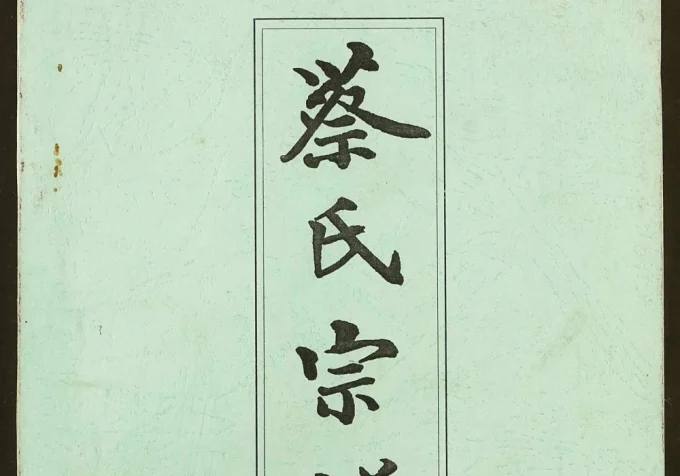 蔡氏宗